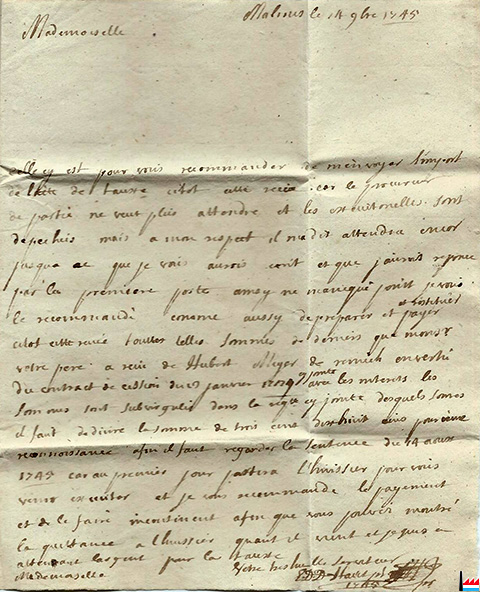 Malines le 14 9bre 1745
Mademoiselle
Celle cy est pour vous recommander de m'envoyer l'import
de de tauxe citot cette recue car le procureur
de partie ne veut plus attendre et les sont
depechuis mais a mon respect il m'a dit attendra encor
jusqua ce que je vous aurois ecrit et que j'aurois reponce
par la premiere poste ainsy ne manequé point je vous
le recommande comme aussy de preparer et payer
et restituer
citot cette recue touttes telles sommes de deniers que monsr
votre pere a recue de Hubert Meyer de remich en vertu
du contract de cession du 9 janvier avec les interests les
y jointe
sommes sont dans la cy jointe desquels somes
il faut deduire la somme de trois cens dixhuit ecus pour une
reconnoissance afin il faut regarder la sentence du 14 aoust
1745 car au premier jour partira l'huissier pour vous
venir executer et je vous recommande le payement
et de le faire incontinent afin que vous pouvez montré
la quittance a l'huissier quant il vient et jaques a
attendant largent pour la tauxe
Votre tres humble serviteur
Mademoiselle
1745